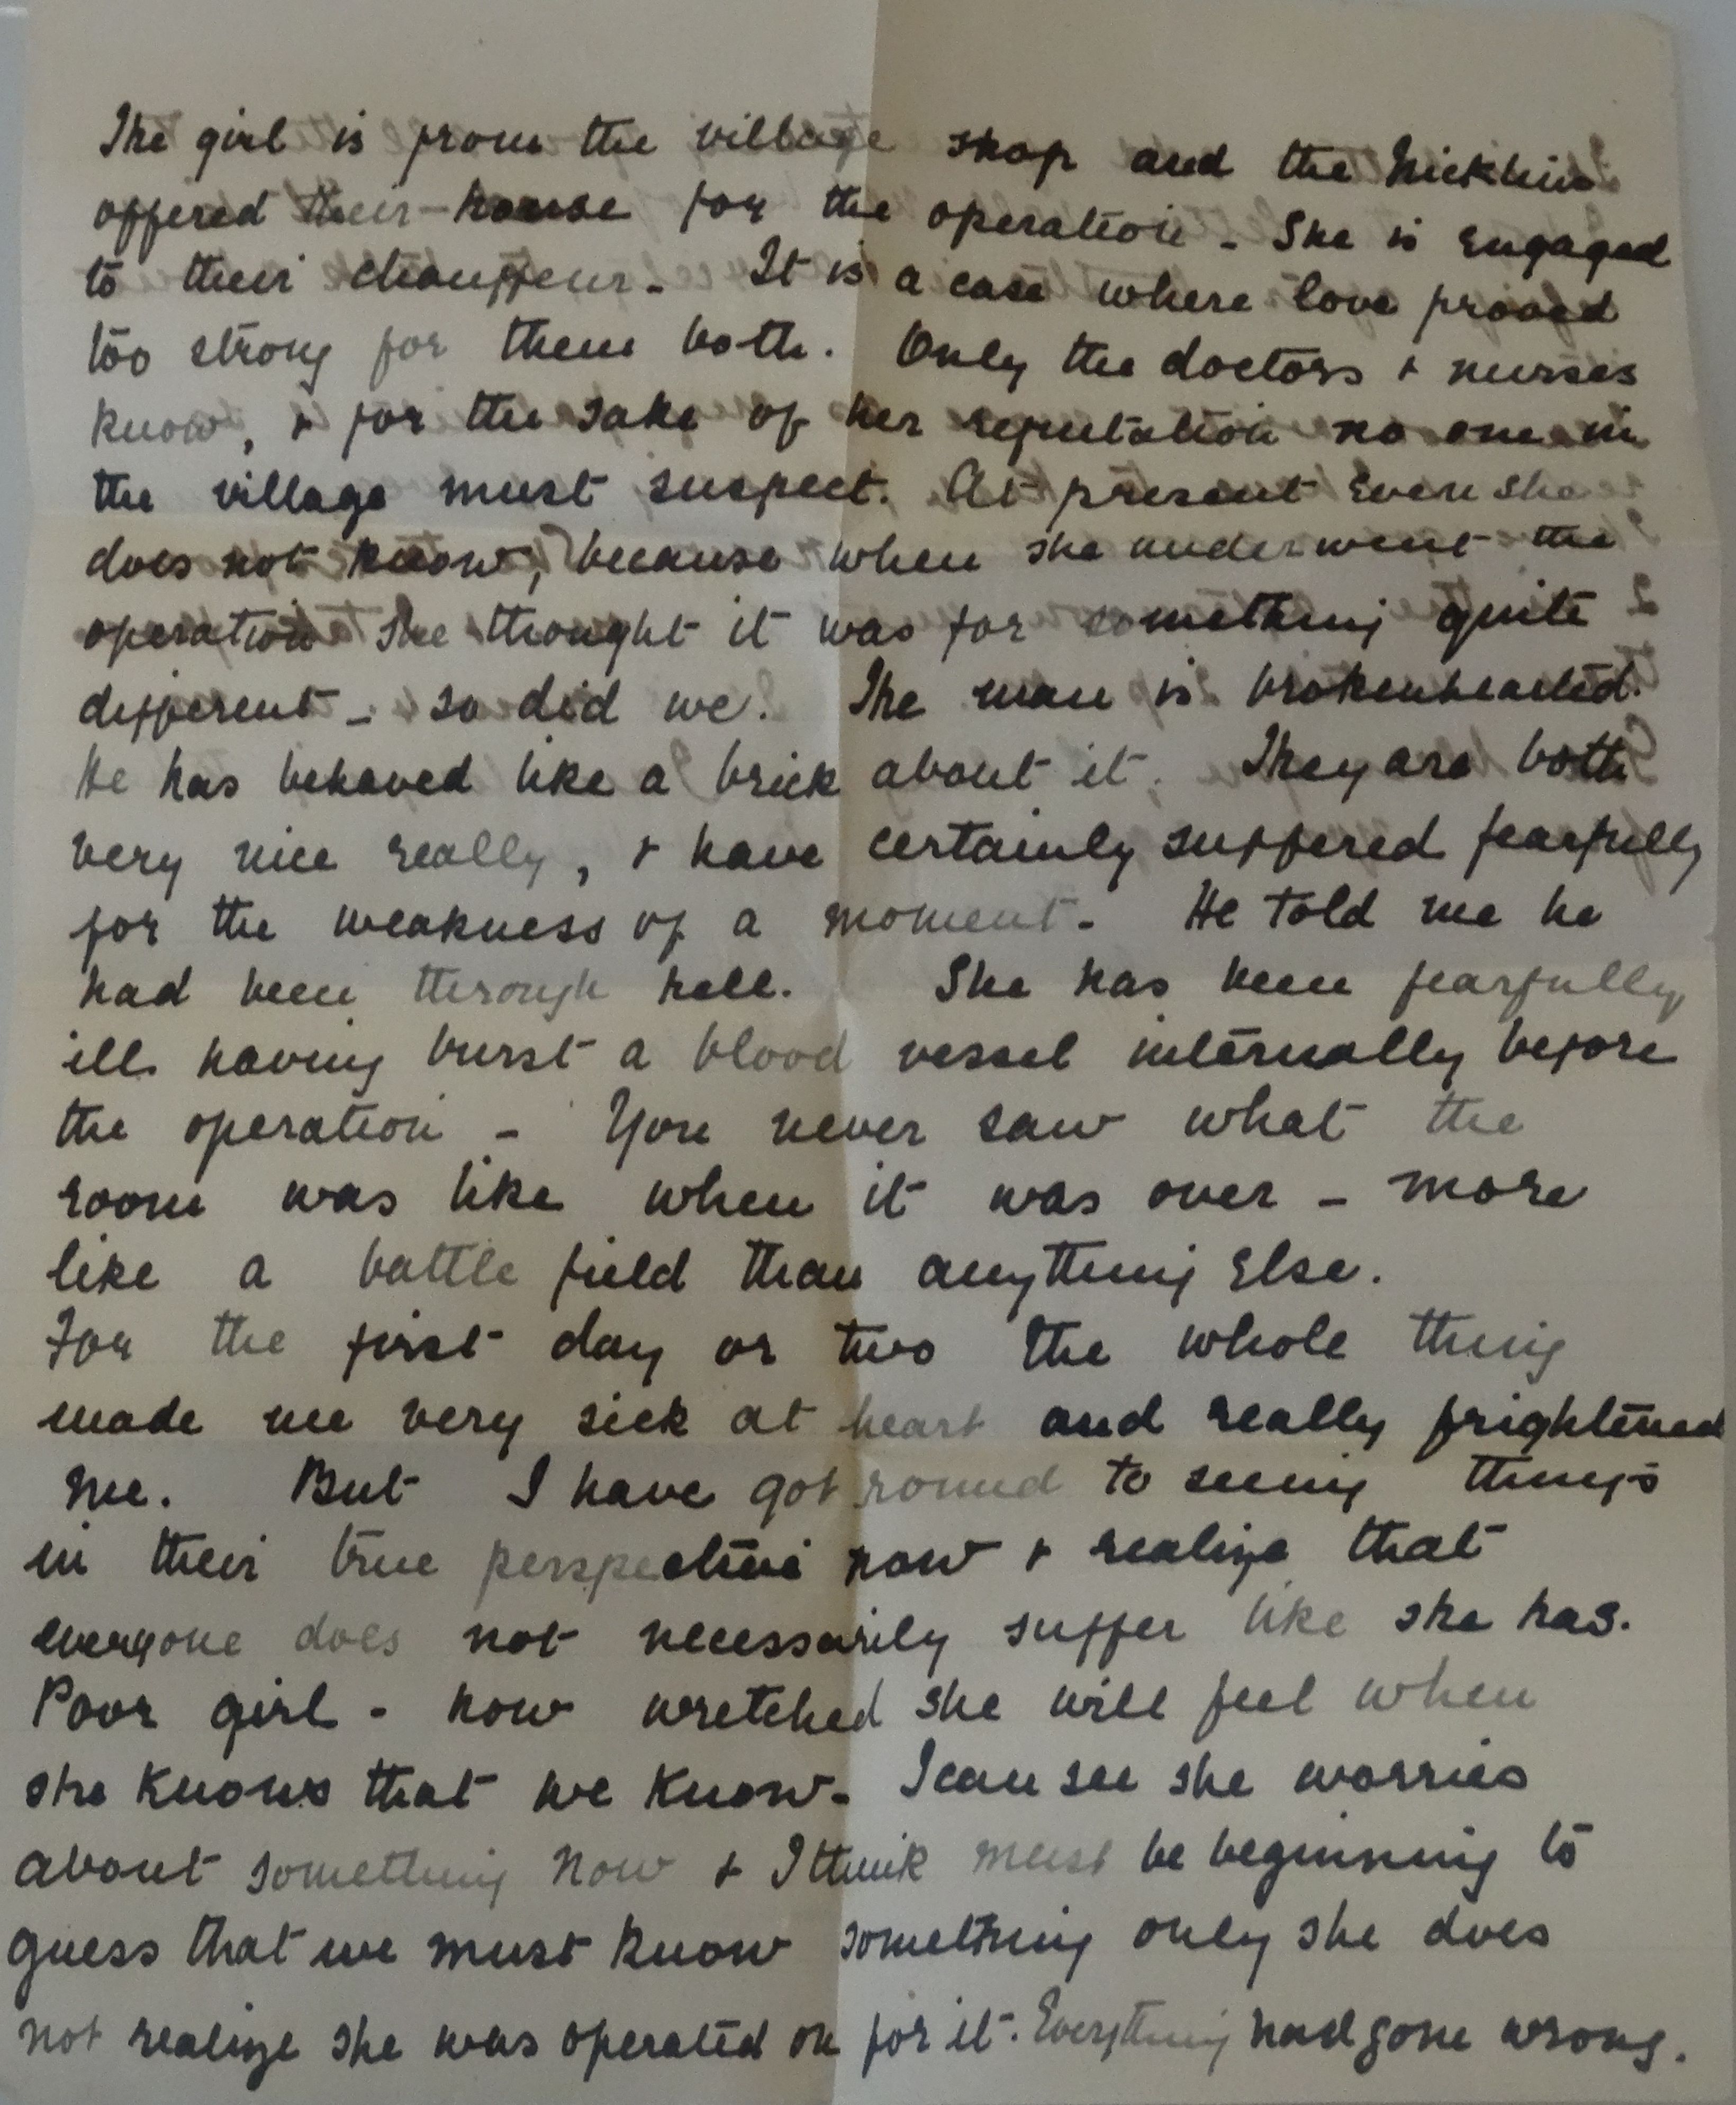 The girl is from the village shop and the
offered their house for the operation - She is engaged
to their chauffeur - It is a case where love proved
too strong for them both. Only the doctors + nurses
know, + for the sake of her reputation no one in
the village must suspect. At present even she
does not know, because when she underwent the
operation she thought it was for something quite
different - so did we! The man is brokenhearted.
He has behaved like a brick about it. They are both
very nice really, + have certainly suffered fearfully
for the weakness of a moment - He told me he
had been through hell. She has been fearfully
ill having burst a blood vessel internally before
the operation - You never saw what the
room was like when it was over - more
like a battle field than anything else.
For the first day or two the whole thing
made me very sick at heart and really frightened
me. But I have got round to seeing things
in their true perspective now + realize that
everyone does not necessarily suffer like she has.
Poor girl - how wretched she will feel when
she knows that we know - I can see she worries
about something now + I think must be beginning to
guess that we must know something only she does
not realize she was operated on for it. Everything had gone wrong.